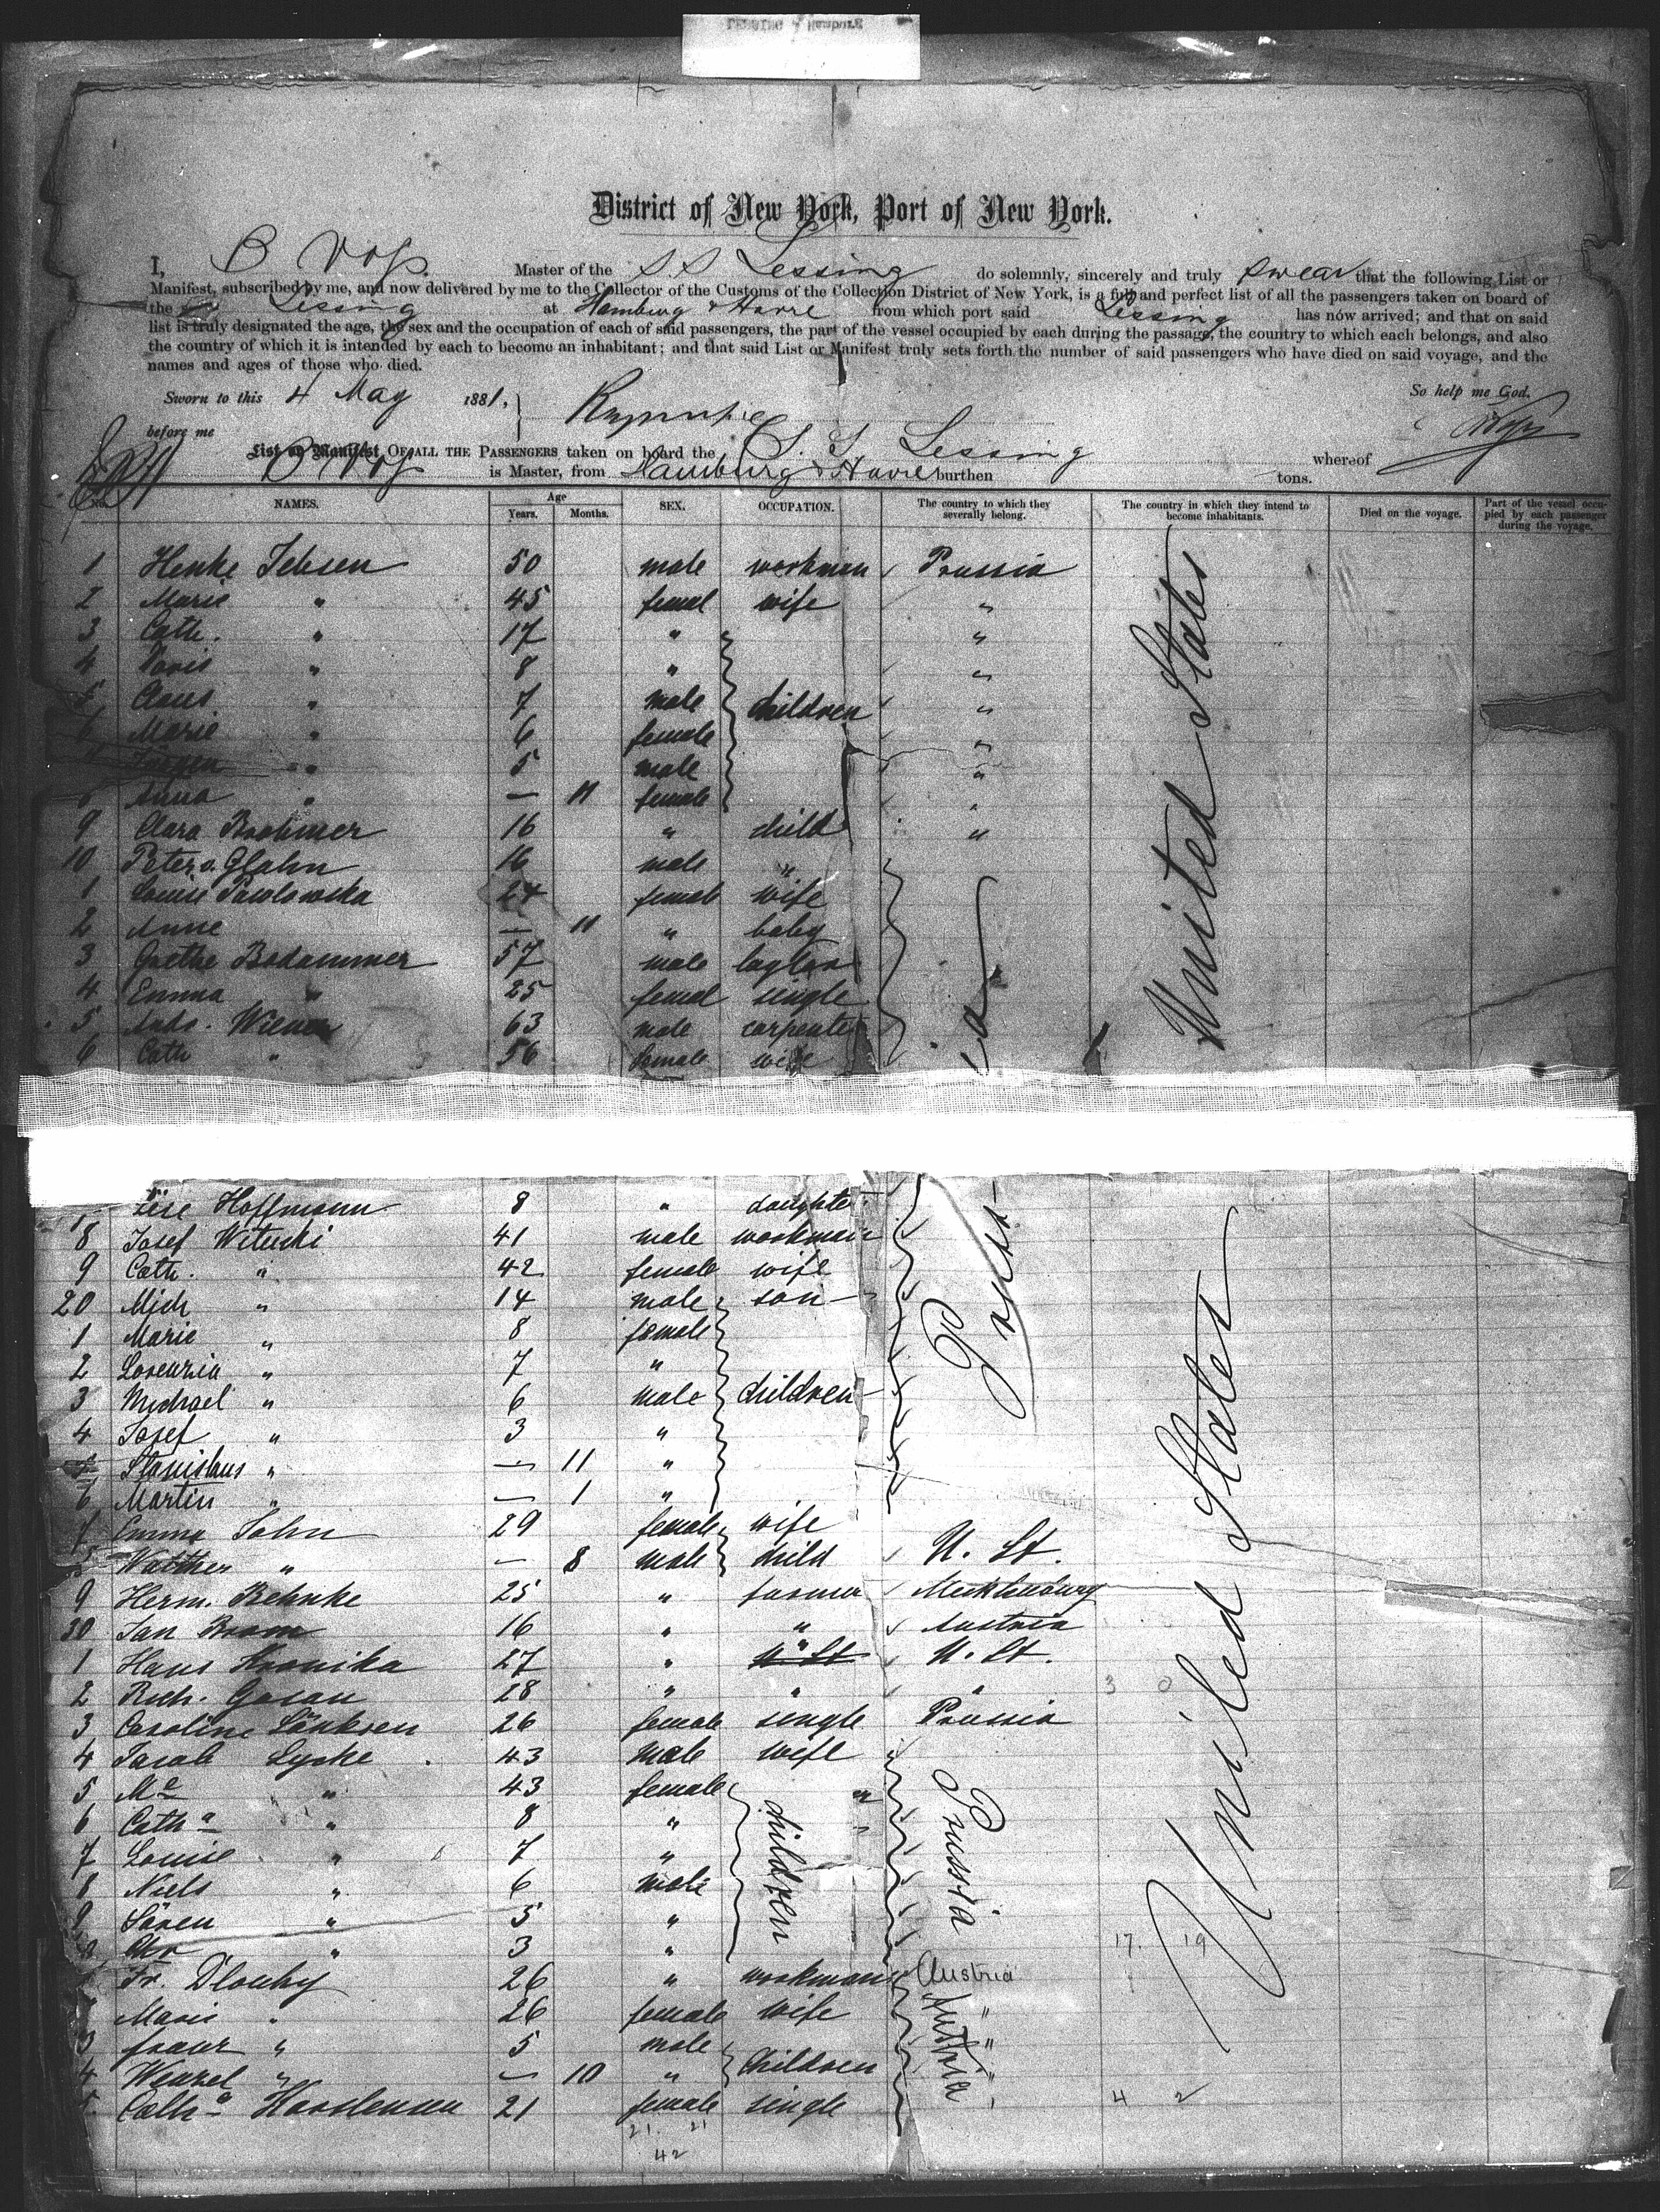 District of New York, Port of New York.
I, B Voss. Master of the S.S Lessing do solemnly, sincerely and truly swear that the following List or
Manifest, subscribed by me, and now delivered by me to the Collector of the Customs of the Collection District of New York, is a full and perfect list of all the passengers taken on board of
the Lessing at Hamburg & Havre from which port said Lessing has now arrived; and that on said
list is truly designated the age, the sex and the occupation of each of said passengers, the part of the vessel occupied by each during the passage, the country to which each belongs, and also
the country of which it is intended by each to become an inhabitant; and that said List or Manifest truly sets forth the number of said passengers who have died on said voyage, and the
names and ages of those who died.
So help me God.
Sworn to this 4 May 1881,
before me
List or Manifest OF ALL THE PASSENGERS taken on board the S. S. Lessing whereof
B Voss is Master, from Hamburg & Havre burthen tons.
NAMES. Age Years. Months. SEX. OCCUPATION. The country to which they severally belong. The country in which they intend to become inhabitants. Died on the voyage. Part of the vessel occupied by each passenger during the voyage.
United States
1 Henke Jebsen 50 male workman Prussia
2 Marie " 45 femal wife "
3 Cath. " 17 " "
4 Doris " 8 " "
5 Claus " 7 male children "
6 Marie " 6 female "
Jürgen " 5 male "
8 Anna " — 11 female "
9 Clara Brohmer 16 " child "
10 Peter v. Glahn 16 male "
1 Louise Pawlowska 24 female wife
2 Anne — 11 " baby
3 Grethe Bodammer 57 male
4 Emma " 25 femal single
5 Andr. 63 male carpenter
6 Cath " 56 female wife
Hoffmann 8 " daughter
8 Josef Wituski 41 male workman
9 Cath. " 42 female wife
20 Mich " 14 male son
1 Marie " 8 female
2 " 7 "
3 Michael " 6 male children
4 Josef " 3 "
5 Stanislaus " — 11 "
6 Martin " — 1 "
7 Emma Jahn 29 female wife
8 Walther " — 8 male child U. St.
9 Herm. Behnke 25 " farmer Mecklenburg
30 Jan 16 " " Austria
1 Hans Kronika 27 " " U. St.
2 Rich. Gosau 28 " " "
3 Caroline Lönksen 26 female single Prussia
4 Jacob Lycke 43 male wife
5 Ma " 43 female "
6 Catha " 8 "
7 Louise " 7 "
8 Niels " 6 male children Prussia
9 Sören " 5 "
" 3 "
17. 19
Fr. Dlouhy 26 " workman Austria
Marie " 26 female wife "
3 Franz " 5 male "
4 Wenzel " — 10 " Children
5 Catha 21 female single
4 2
21. 21
42
United States